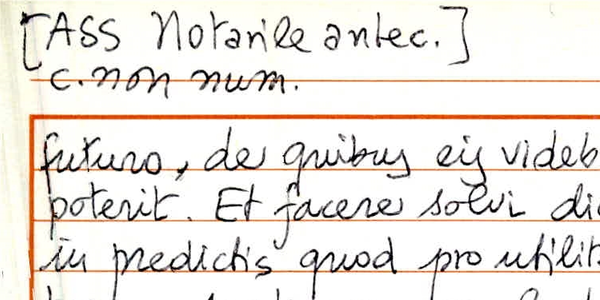 [ASS Notarile antec.]
c. non num.
futuro, de quibus eis videb
poterit. Et facere solvi dic
in predictis quod pro utilit